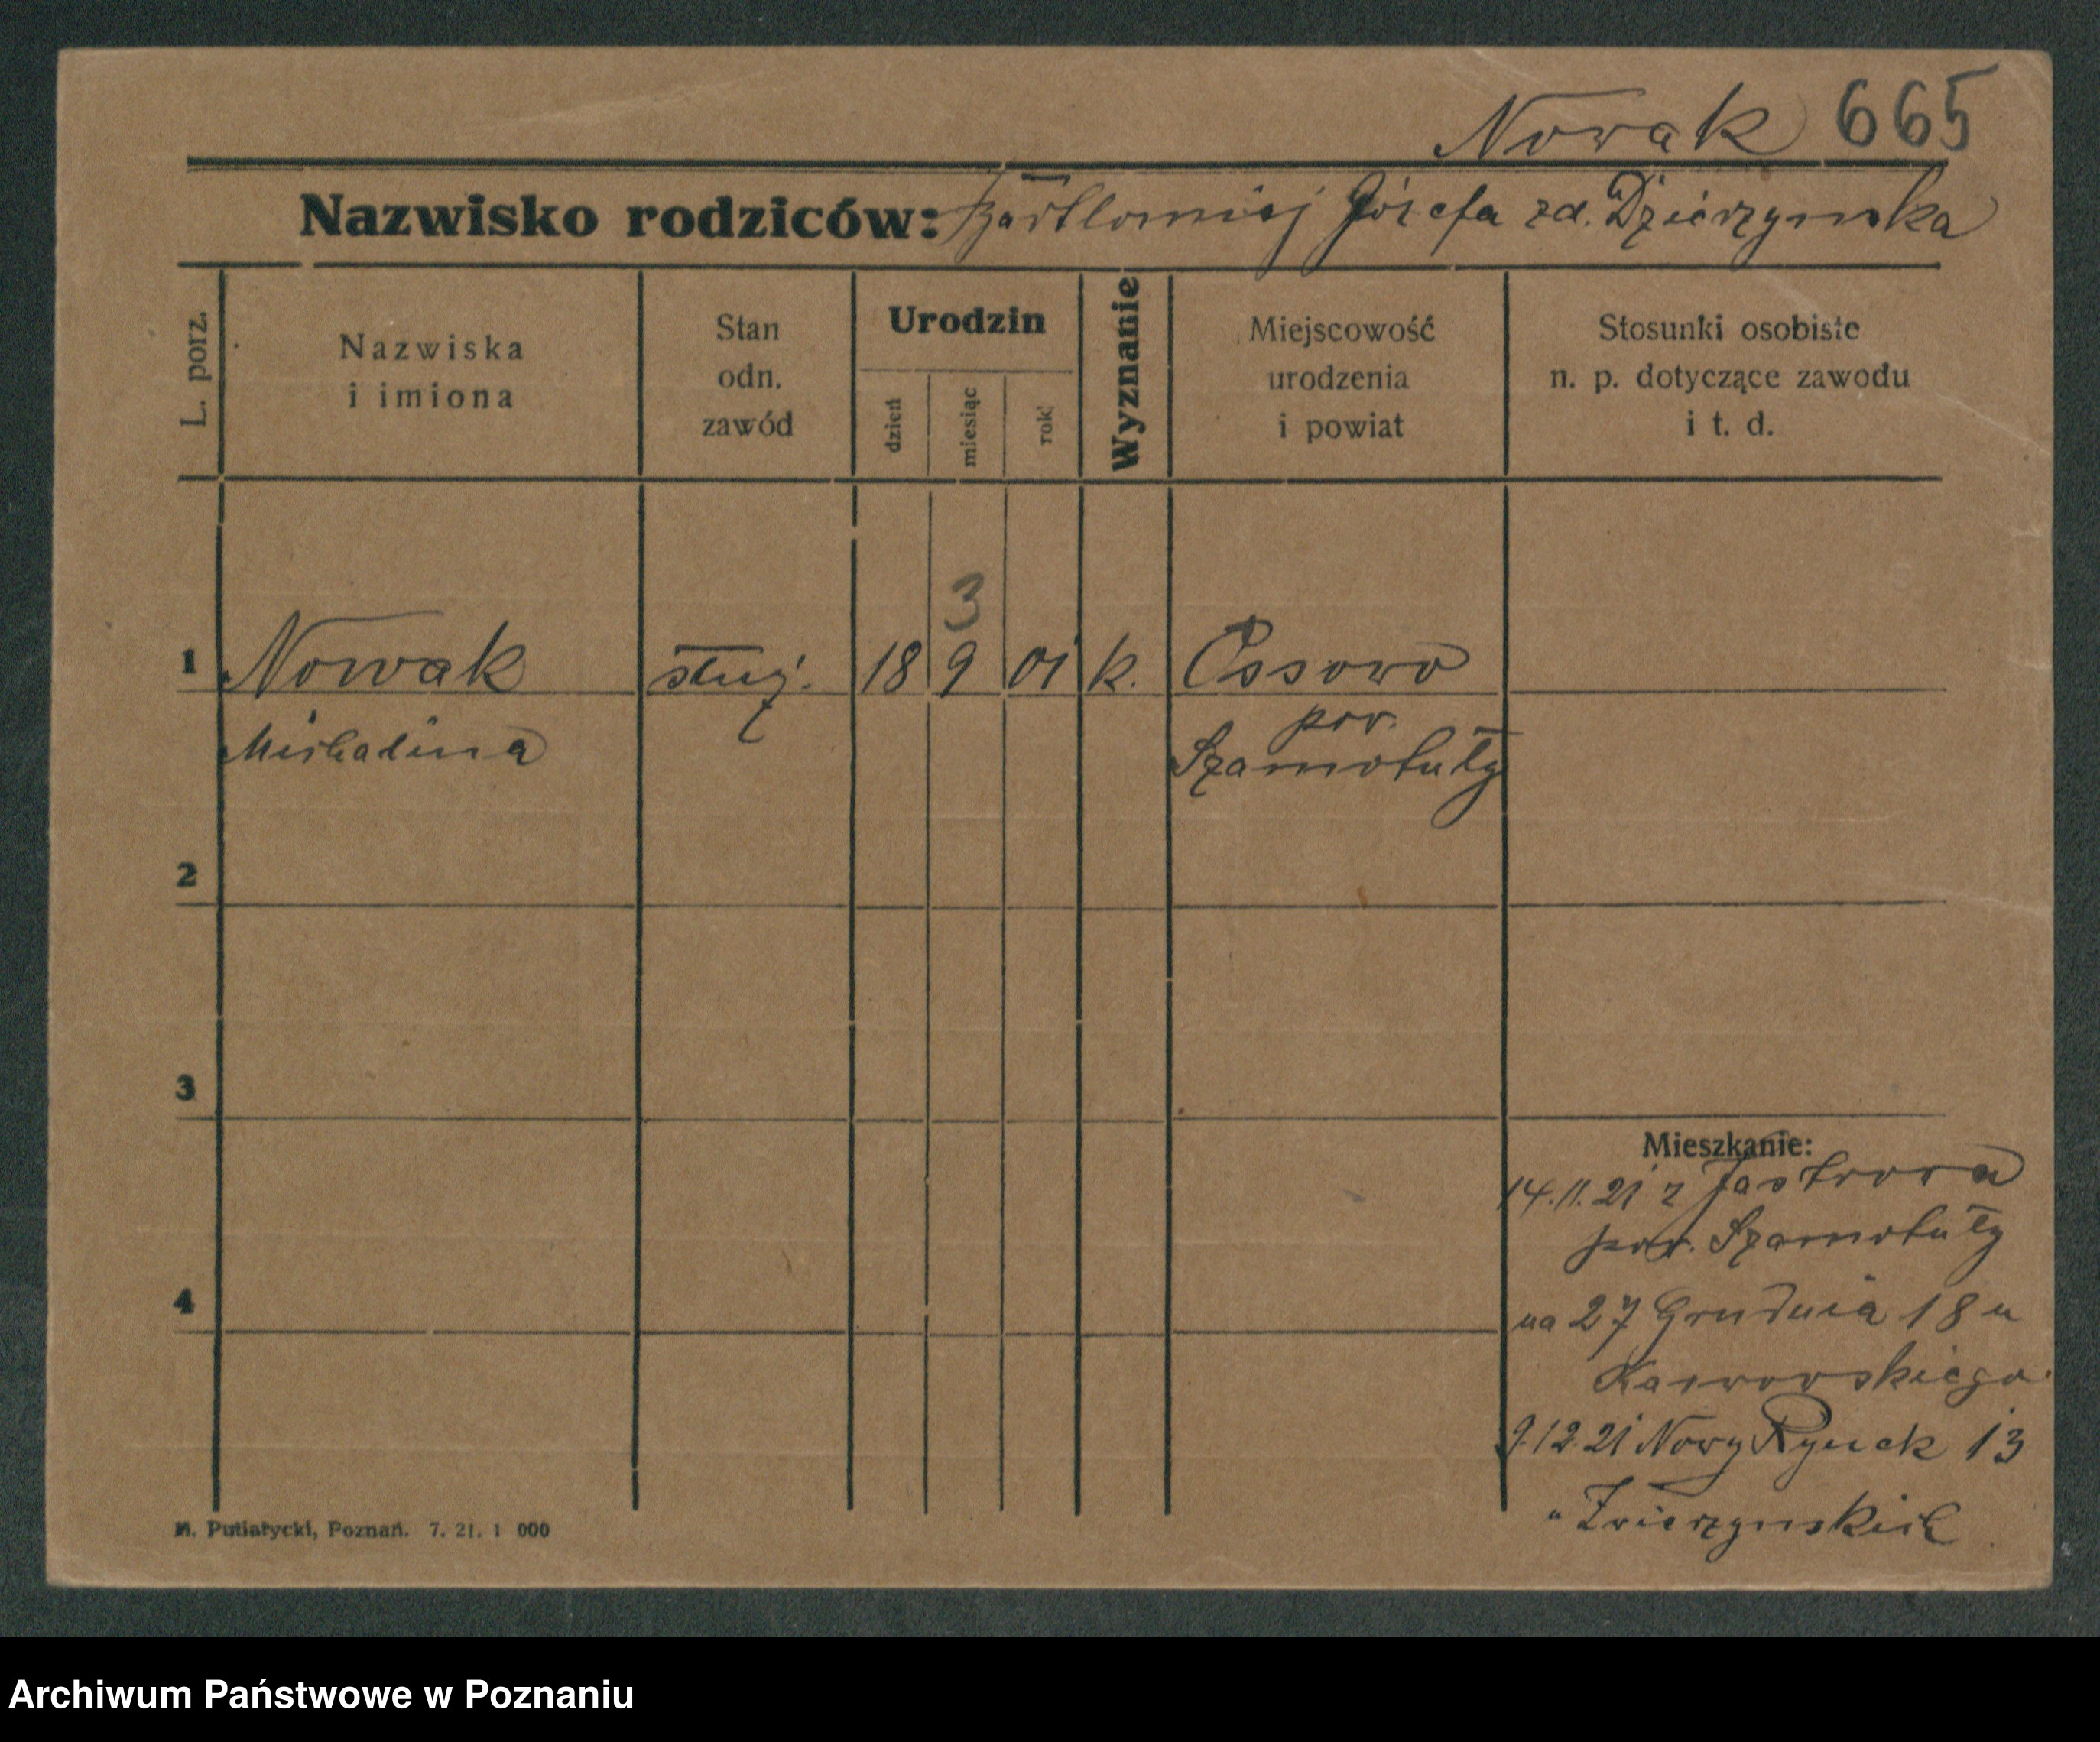 Nowak 665
Nazwisko rodziców: Bartłomiej Józefa zd. Dzierzynska
L. porz.
Nazwiska
i imiona
Stan
odn.
zawód
Urodzin
dzień
miesiąc
rok
Wyznanie
Miejscowość
urodzenia
i powiat
Stosunki osobiste
n. p. dotyczące zawodu
i t. d.
3
1 Nowak służ. 18 9 01 k. Ossowo
Michalina
pow.
Szamotuły
2
3
Mieszkanie:
14.11.21 z Jastrowa
pow. Szamotuły
4
na 27 Grudnia 18 u
9.12.21 Nowy Rynek 13
" Zwierzynskich
M. Putiatycki, Poznań. 7. 21. 1 000
Archiwum Państwowe w Poznaniu